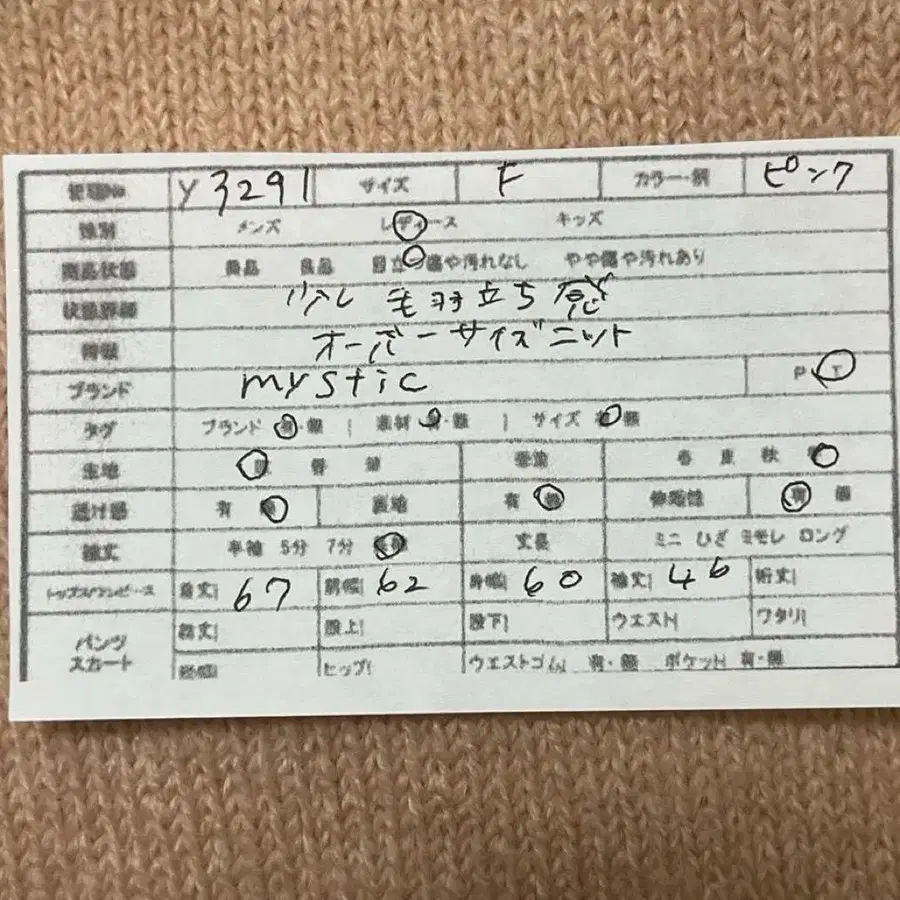 管理No Y3291 サイズ F カラー・柄 ピンク
性別 メンズ レディース キッズ
商品状態 美品 良品 目立つ傷や汚れなし やや傷や汚れあり
状態詳細 少し毛羽立ち感
特徴 オーバーサイズニット
ブランド mystic P T
タグ ブランド 有・無 | 素材 有・無 | サイズ 有・無
生地 厚 普 薄 季節 春 夏 秋 冬
透け感 有 無 裏地 有 無 伸縮性 有 無
袖丈 半袖 5分 7分 長袖 丈長 ミニ ひざ ミモレ ロング
トップス/ワンピース 着丈| 67 肩幅| 62 身幅| 60 袖丈| 46 裄丈|
パンツ スカート 総丈| 股上| 股下| ウエスト| ワタリ|
裾幅| ヒップ| ウエストゴム| 有・無 ポケット| 有・無